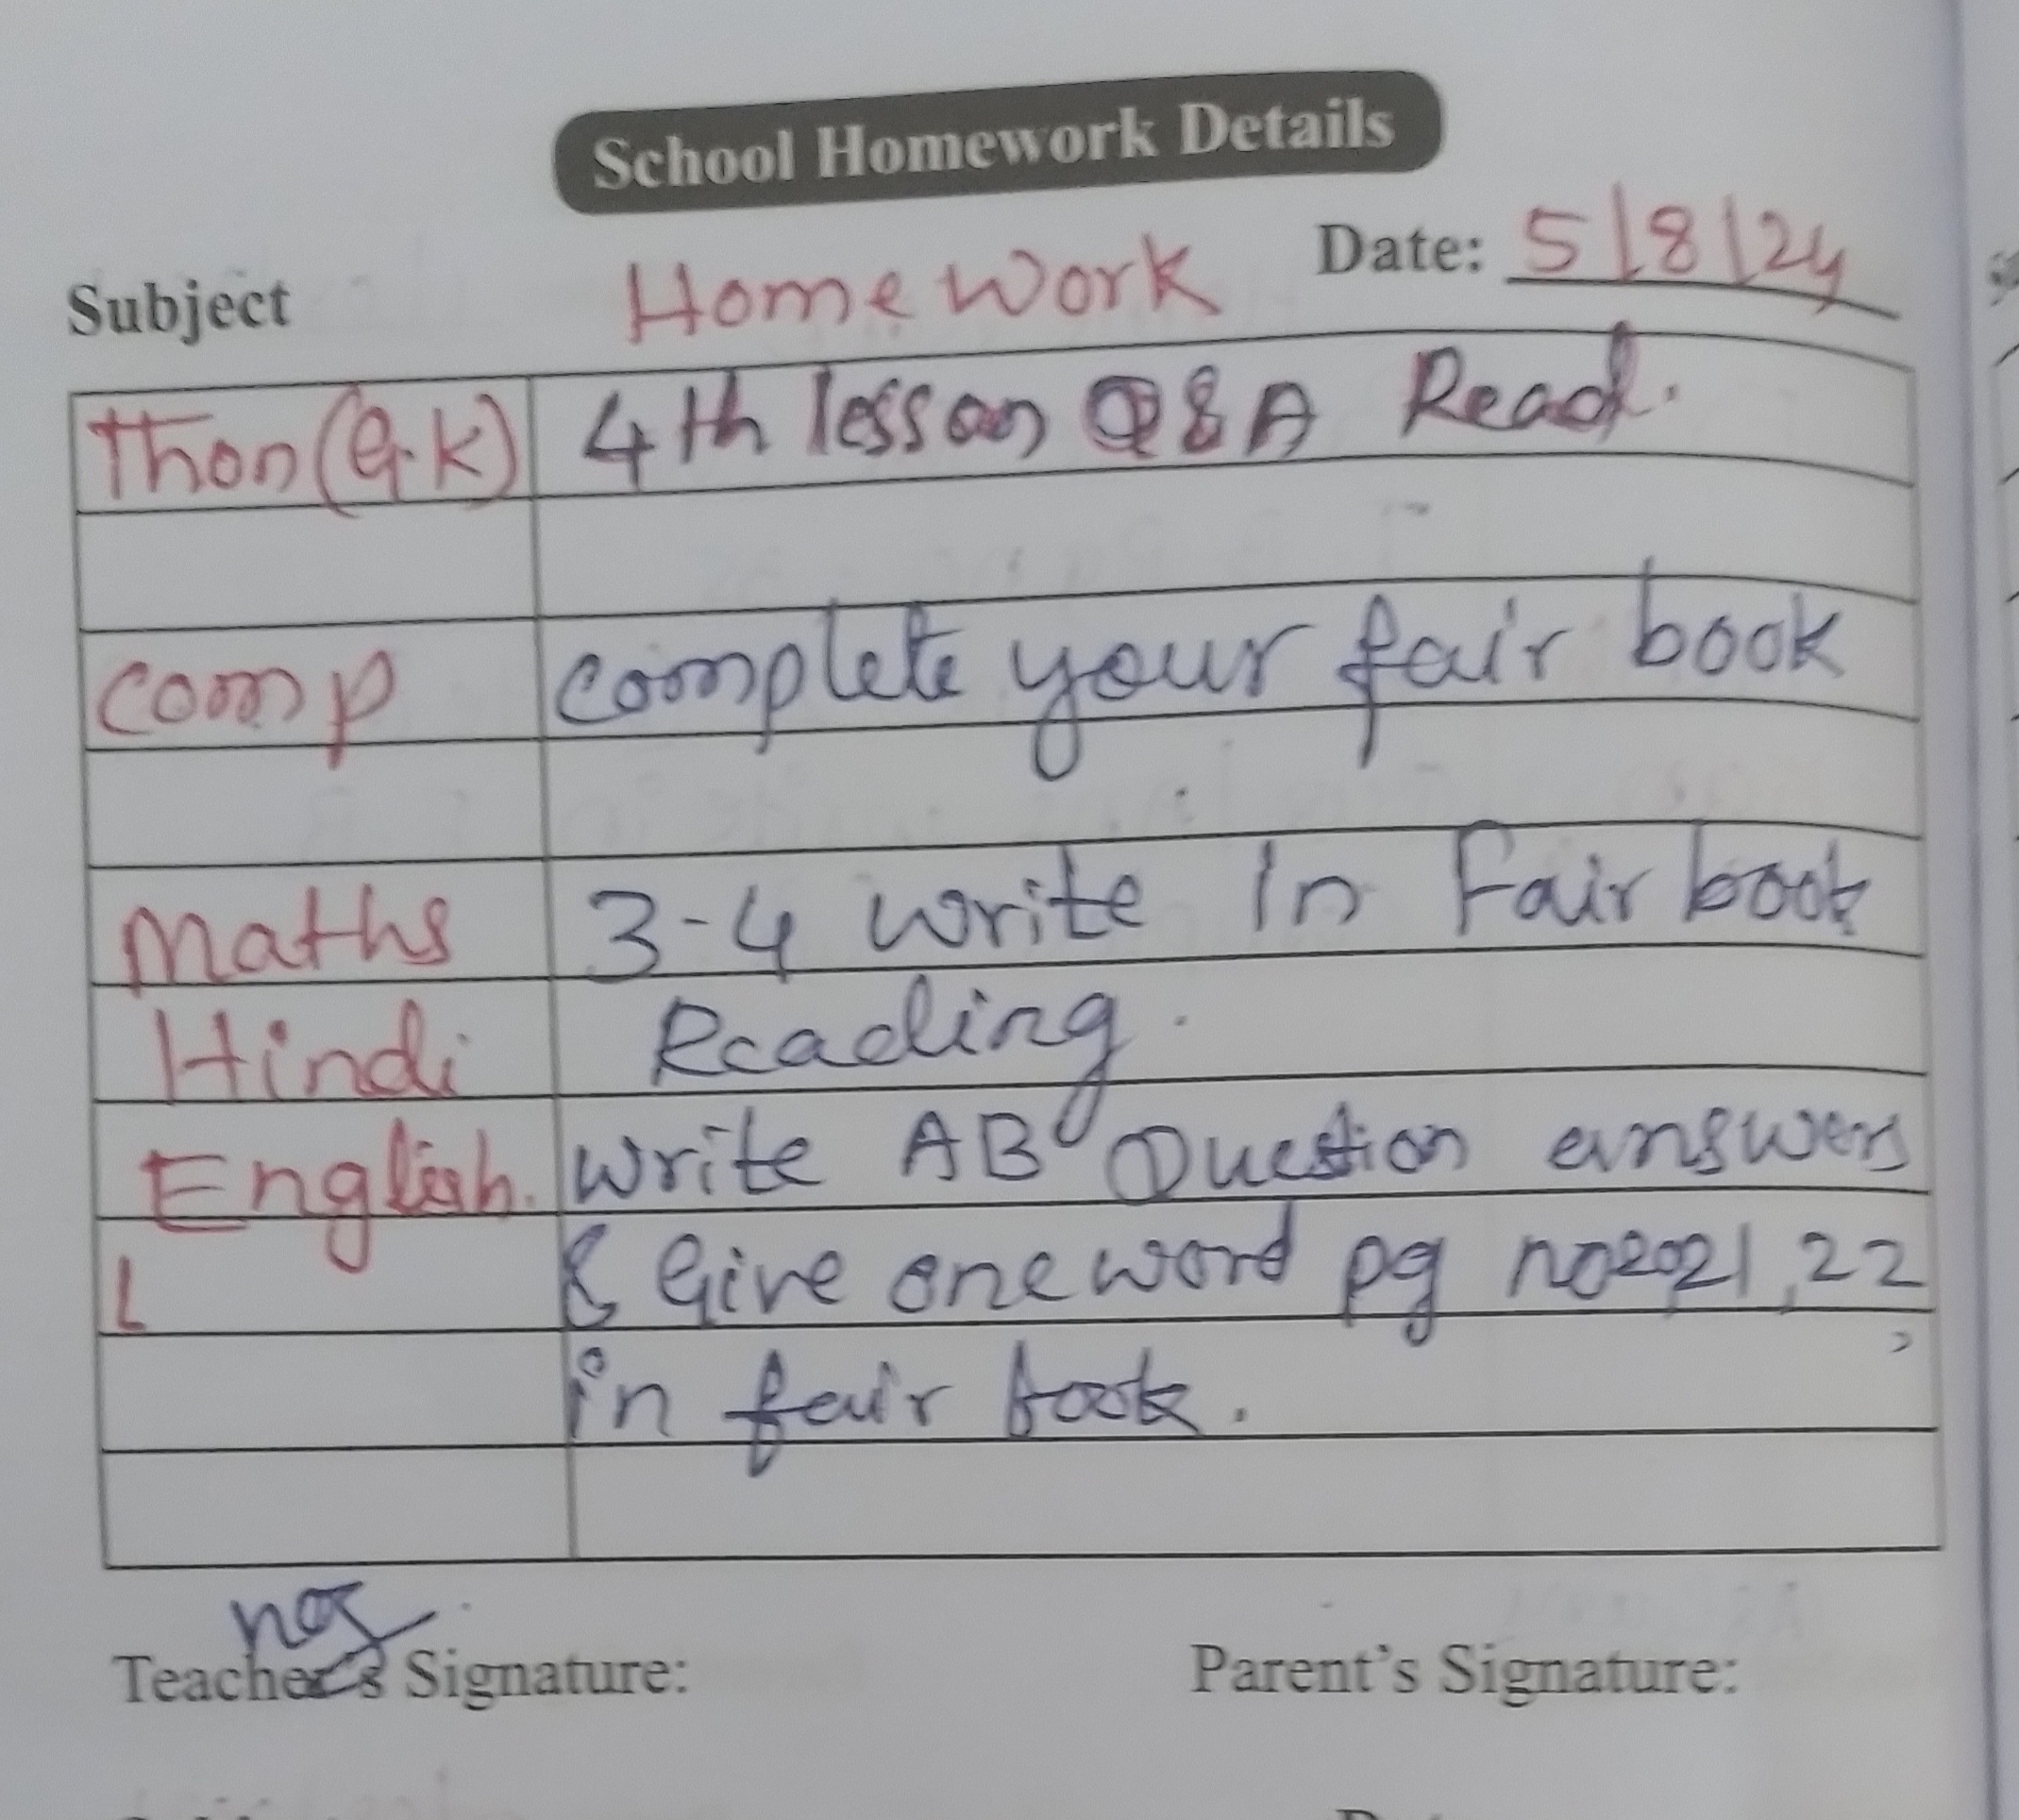 School Homework Details
Subject Home Work Date: 5/8/24
Thon(G.K) 4th lesson Q&A Read.
comp complete your fair book
Maths 3-4 write in Fair book
Hindi Reading.
English. write AB Question answers
L & Give one word pg no 20,21,22
in fair book.
Teacher's Signature: Parent's Signature: